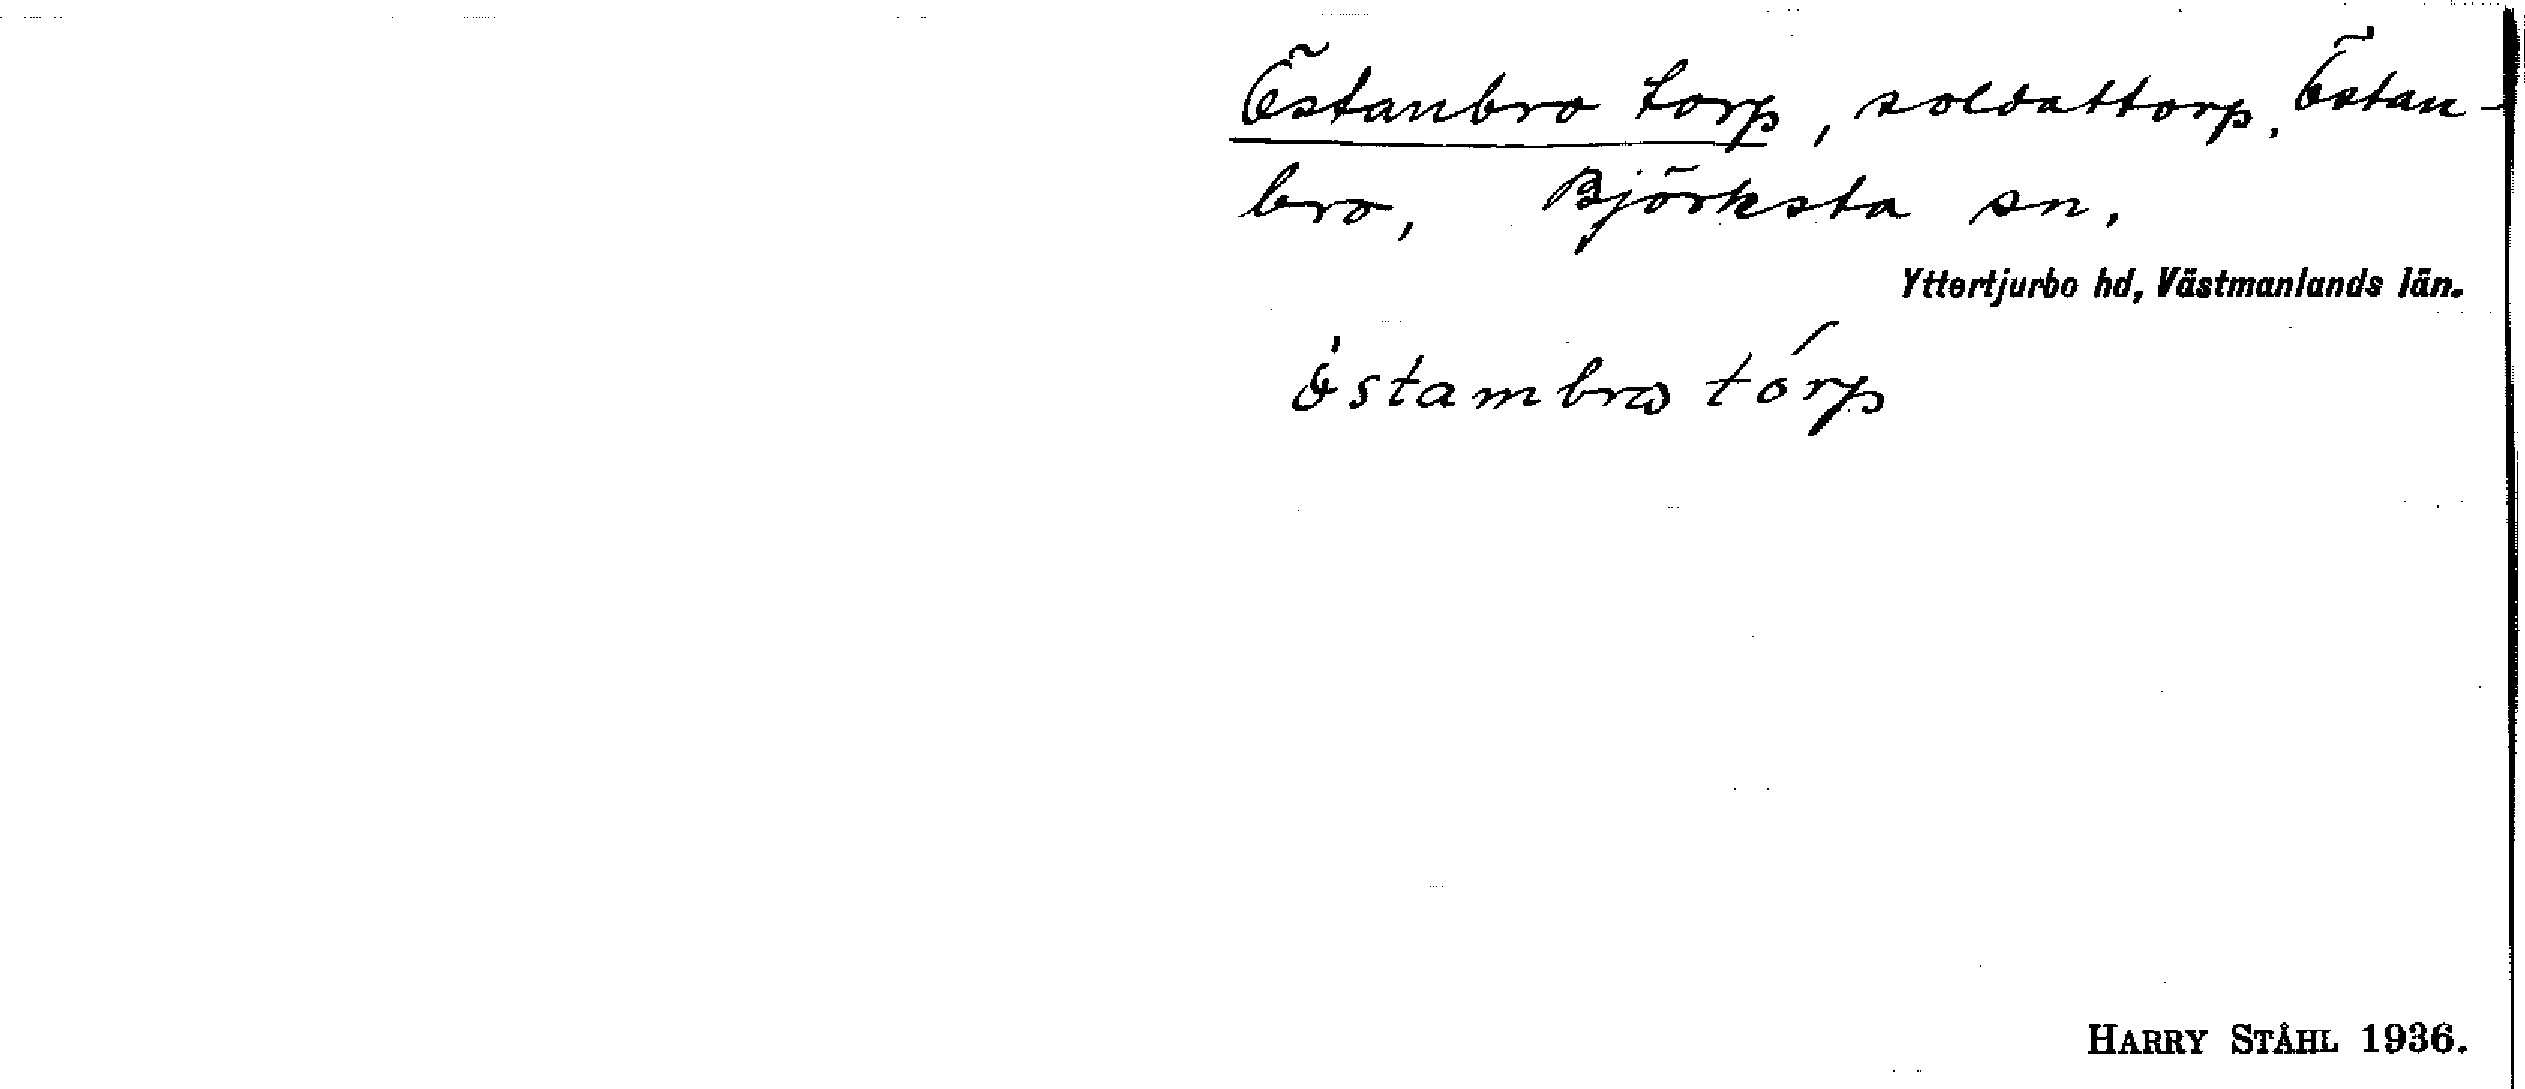 Östanbro torp, soldattorp, Östan-
bro, Björksta sn.
Yttertjurbo hd, Västmanlands län.
östambro tórp
HARRY STÅHL 1936.